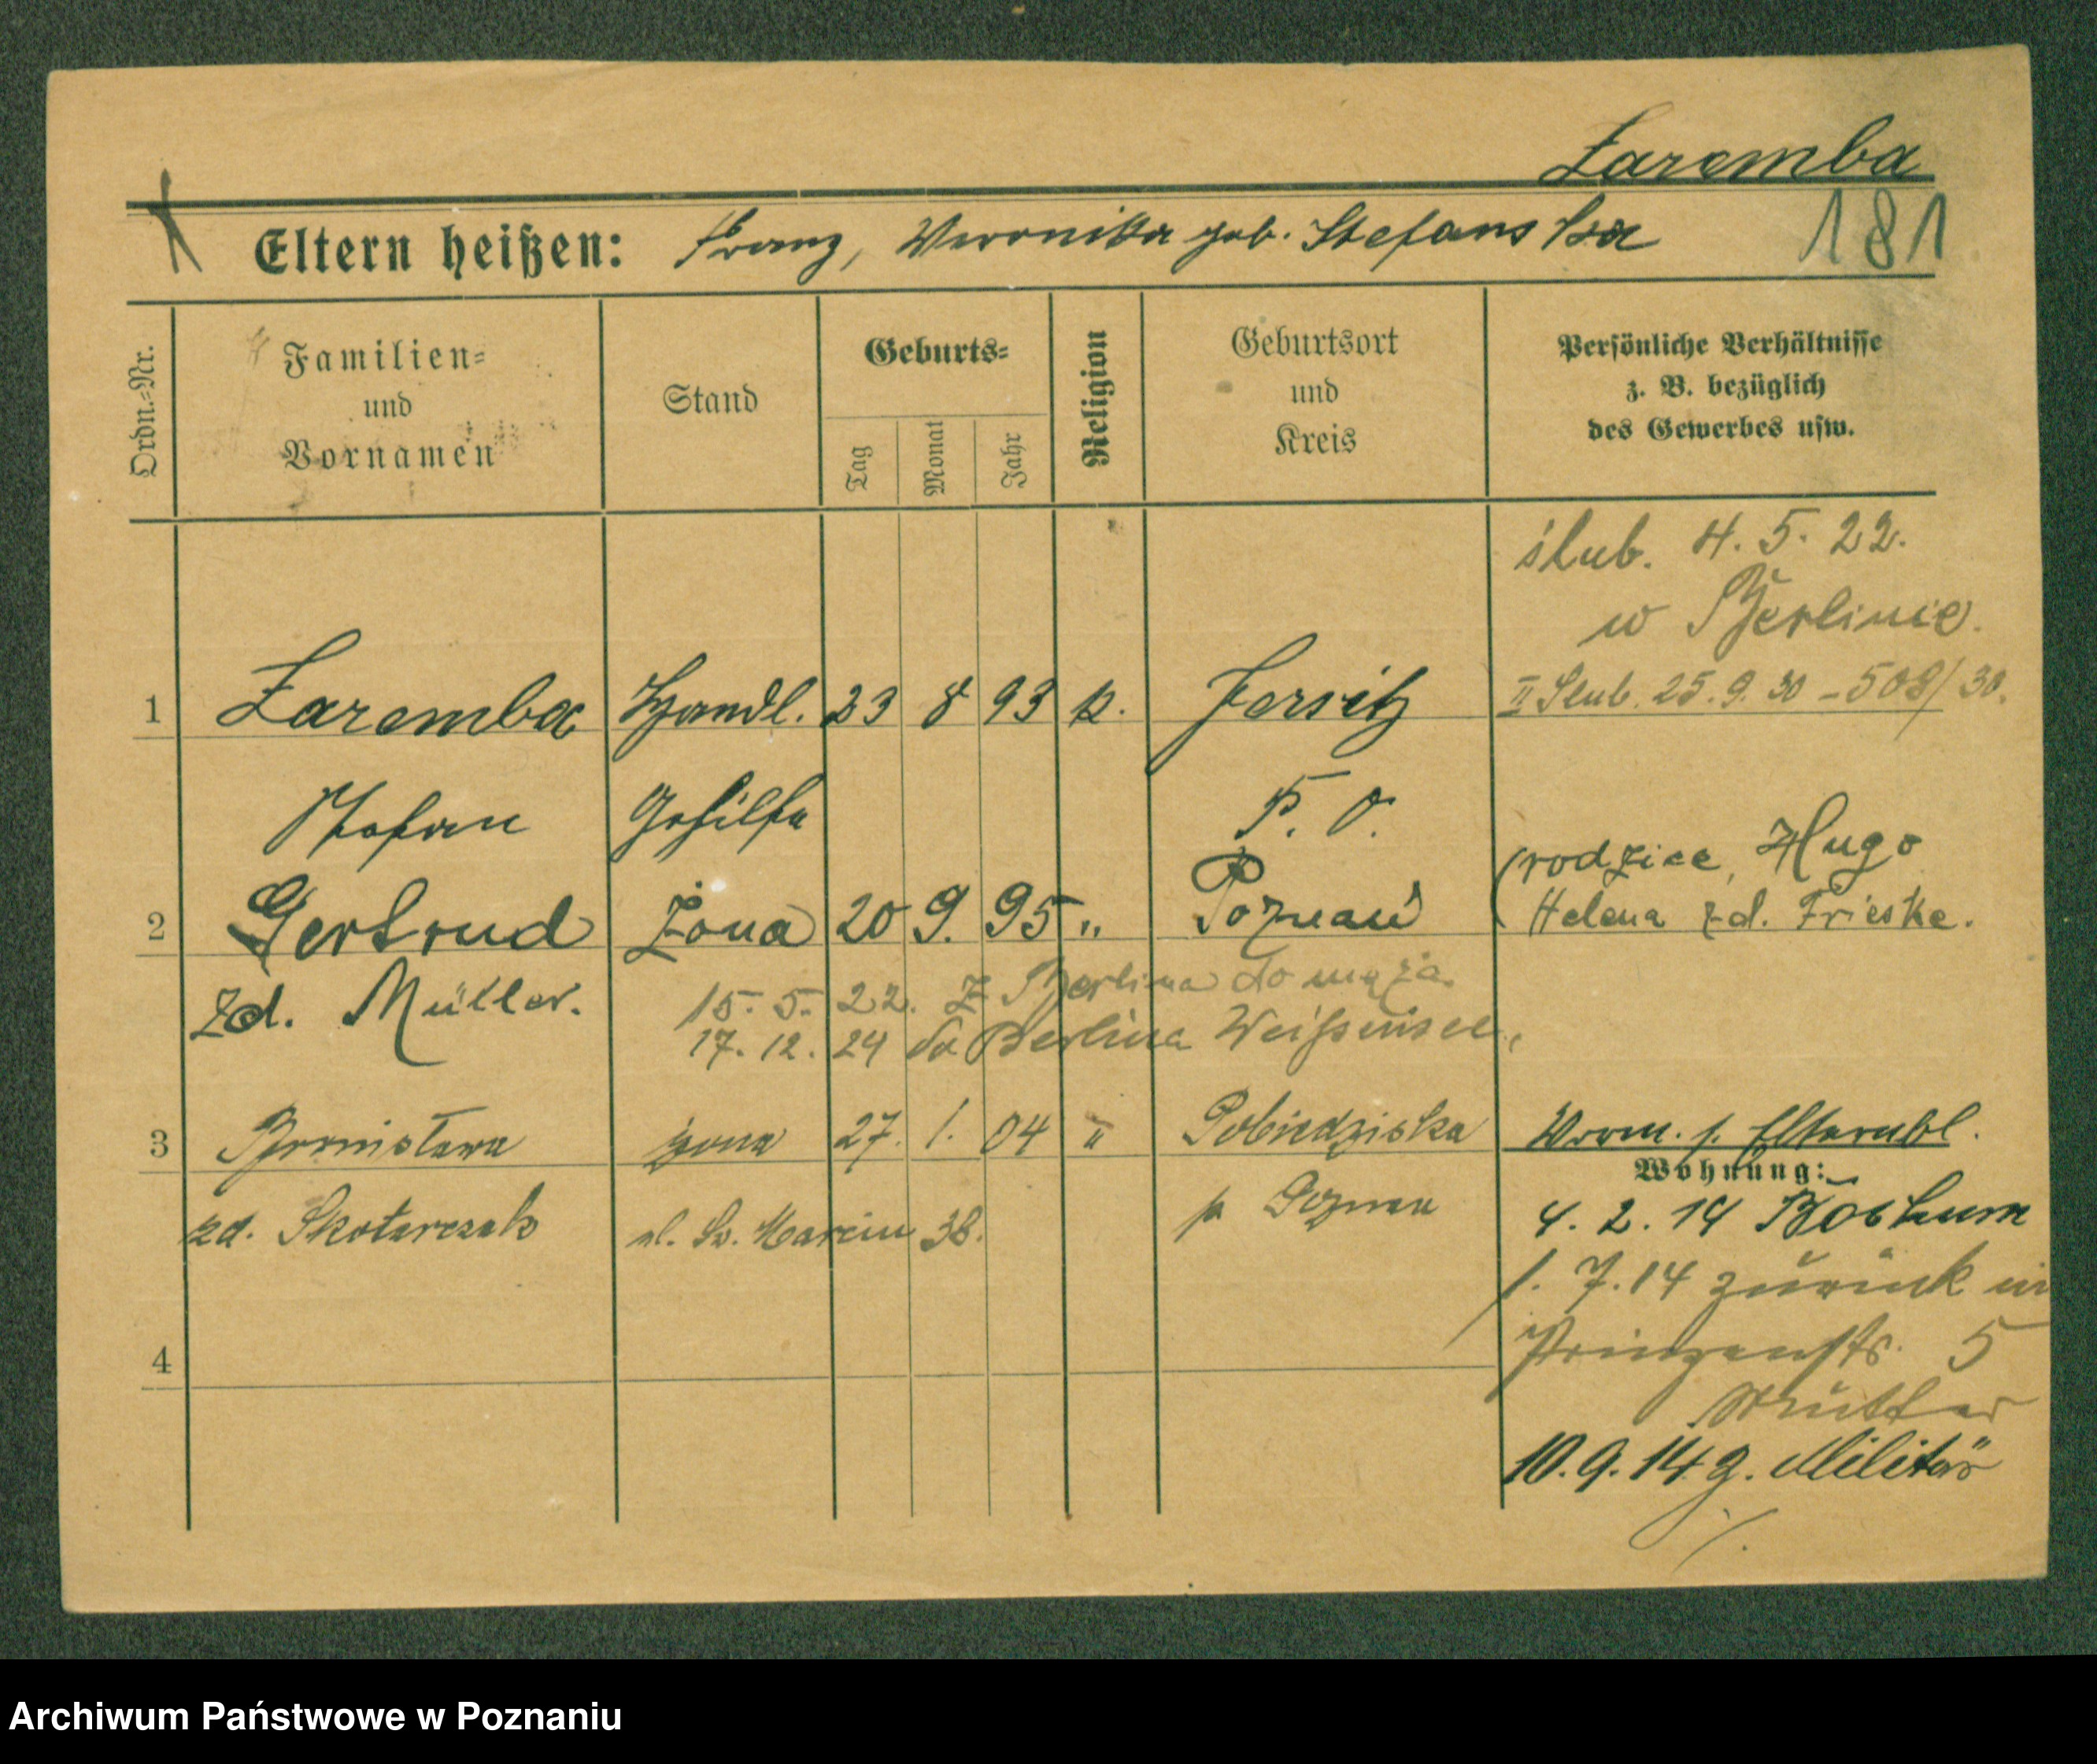 Zaremba
181
Eltern heißen: Franz, Veronika geb. Stefanska
Ordn.-Nr.
Familien-
und
Vornamen
Stand
Geburts-
Tag
Monat
Jahr
Religion
Geburtsort
und
Kreis
Persönliche Verhältnisse
z. B. bezüglich
des Gewerbes usw.
ślub. 4. 5. 22.
w Berlinie.
II Slub. 25. 9. 30 - 508/30.
1 Zaremba Handl. 23 8 93 k. Jersitz
Stefan Gehilfe P. O.
(rodzice, Hugo
2 Gertrud Żona 20 9. 95 " Poznań
Helena zd. Frieske.
zd. Müller. 15. 5. 22. z Berlina do męża.
17. 12. 24 do Berlina Weißensee,
3 Bronisława żona 27. 1. 04 " Pobiedziska
Vorm. s. Elternbl.
Wohnung:
zd. Skotarczak ul. Św. Marcin 38. p Poznań
4. 2. 14 Bochum
1. 7. 14 zurück in
Prinzenstr. 5
Mutter
4
10. 9. 14 z. Militär
./.
Archiwum Państwowe w Poznaniu